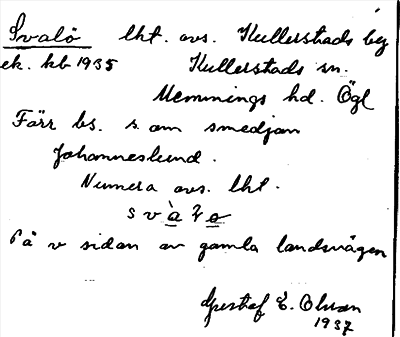 Svalö lht. avs. Kullerstads by
ek. kb 1935 Kullerstads sn.
Memmings hd. Ögl
Förr bs. s. om smedjan
Johanneslund.
Numera avs. lht.
På v sidan av gamla landsvägen
Gustaf E. Olsson
1937